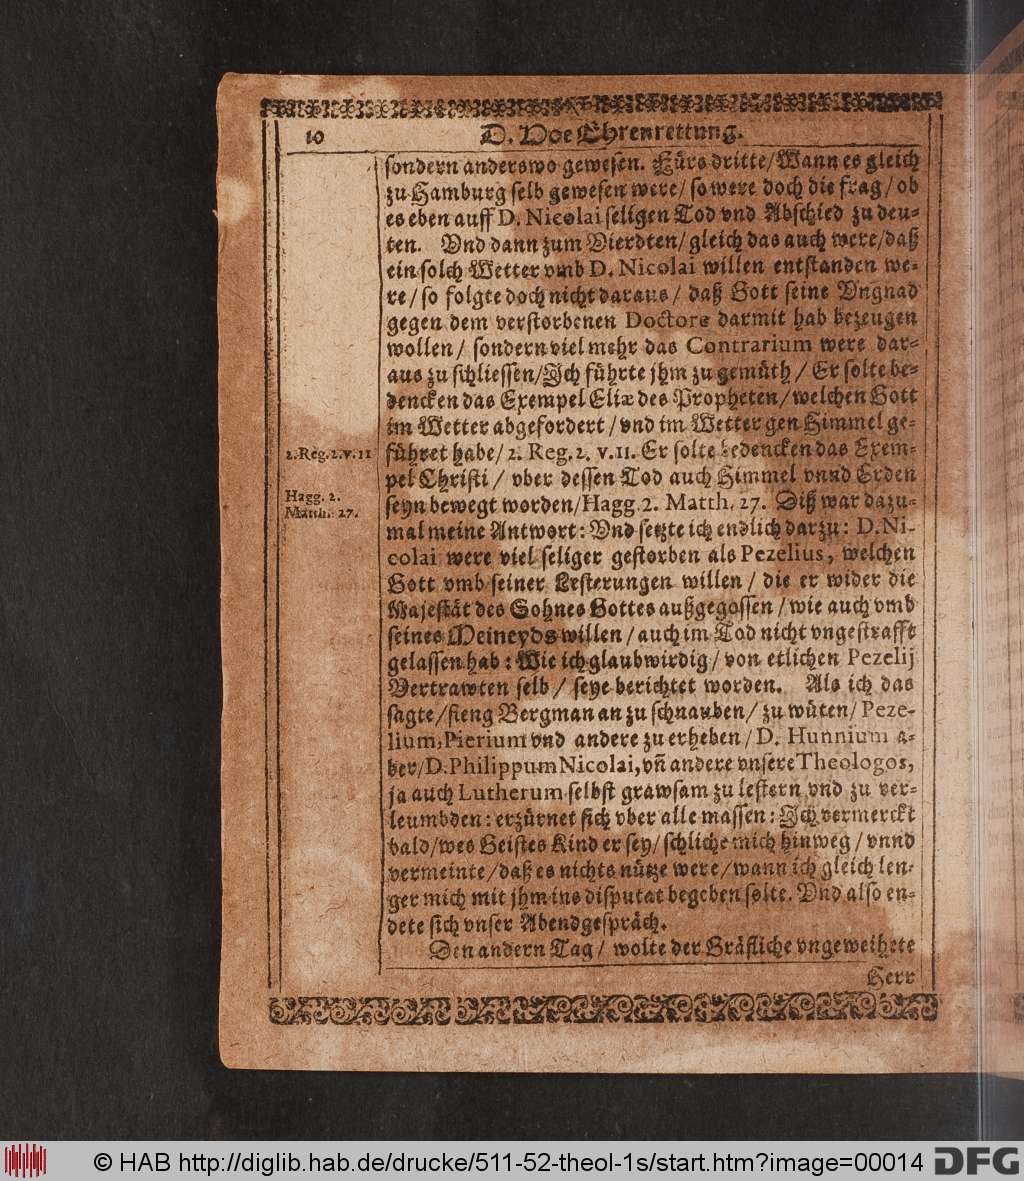 10 D. Hoe Ehrenrettung.
sondern anderswo gewesen. Fürs dritte/Wann es gleich
zu Hamburg selb gewesen were/ so were doch die frag/ ob
es eben auff D. Nicolai seligen Tod vnd Abschied zu deu-
ten. Vnd dann zum Vierdten/ gleich das auch were/daß
ein solch Wetter vmb D. Nicolai willen entstanden we-
re/ so folgte doch nicht daraus/ daß Gott seine Vngnad
gegen dem verstorbenen Doctore darmit hab bezeugen
wollen/ sondern viel mehr das Contrarium were dar-
aus zu schliessen/Ich führte jhm zu gemüth/ Er solte be-
dencken das Exempel Eliæ des Propheten/welchen Gott
im Wetter abgefordert/ vnd im Wetter gen Himmel ge-
2.Reg.2.v.11 führet habe/ 2. Reg. 2. v. 11. Er solte bedencken das Exem-
pel Christi/ vber dessen Tod auch Himmel vnnd Erden
Hagg. 2. seyn bewegt worden/Hagg. 2. Matth. 27. Diß war dazu-
Matth. 27. mal meine Antwort: Vnd setzte ich endlich darzu: D. Ni-
colai were viel seliger gestorben als Pezelius, welchen
Gott vmb seiner Lesterungen willen/ die er wider die
Majestät des Sohnes Gottes außgegossen/ wie auch vmb
seines Meineyds willen/ auch im Tod nicht vngestrafft
gelassen hab: Wie ich glaubwirdig/ von etlichen Pezelij
Vertrawten selb/ seye berichtet worden. Als ich das
sagte/fieng Bergman an zu schnauben/ zu wüten/ Peze-
lium, Pierium vnd andere zu erheben/ D. Hunnium a-
ber/D. Philippum Nicolai, vñ andere vnsere Theologos,
ja auch Lutherum selbst grawsam zu lestern vnd zu ver-
leumbden: erzürnet sich vber alle massen: Ich vermerckt
bald/wes Geistes Kind er sey/ schliche mich hinweg/ vnnd
vermeinte/daß es nichts nütze were/wann ich gleich len-
ger mich mit jhm ins disputat begeben solte. Vnd also en-
dete sich vnser Abendgespräch.
Den andern Tag/ wolte der Gräfliche vngeweihete
Herr
© HAB http://diglib.hab.de/drucke/511-52-theol-1s/start.htm?image=00014 DFG